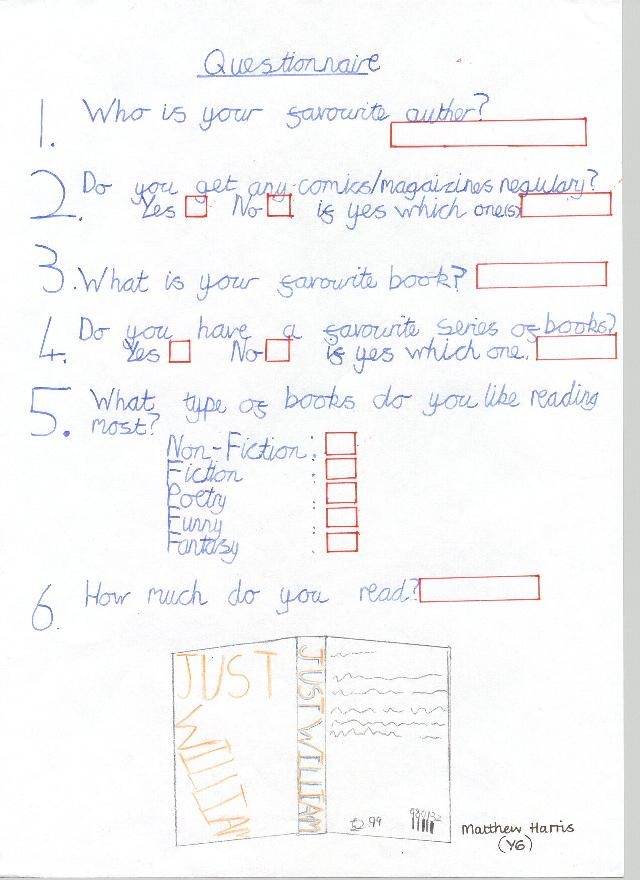 Questionnaire
1. Who is your favourite auther?
2. Do you get any comics/magaizines regulary?
Yes No if yes which one(s)
3. What is your favourite book?
4. Do you have a favourite series of books?
Yes No if yes which one.
5. What type of books do you like reading
most?
Non-Fiction :
Fiction :
Poetry :
Funny :
Fantasy :
6. How much do you read?
JUST
WILLIAM
JUST WILLIAM
99
Matthew Harris
(Y6)